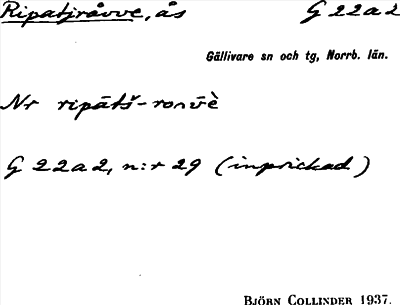 Ripatjråvve, ås G 22a2
Gällivare sn och tg, Norrb. län.
Nr ripātš-ronv̄è
G 22a2, n:r 29 (inprickad)
BJÖRN COLLINDER 1937.